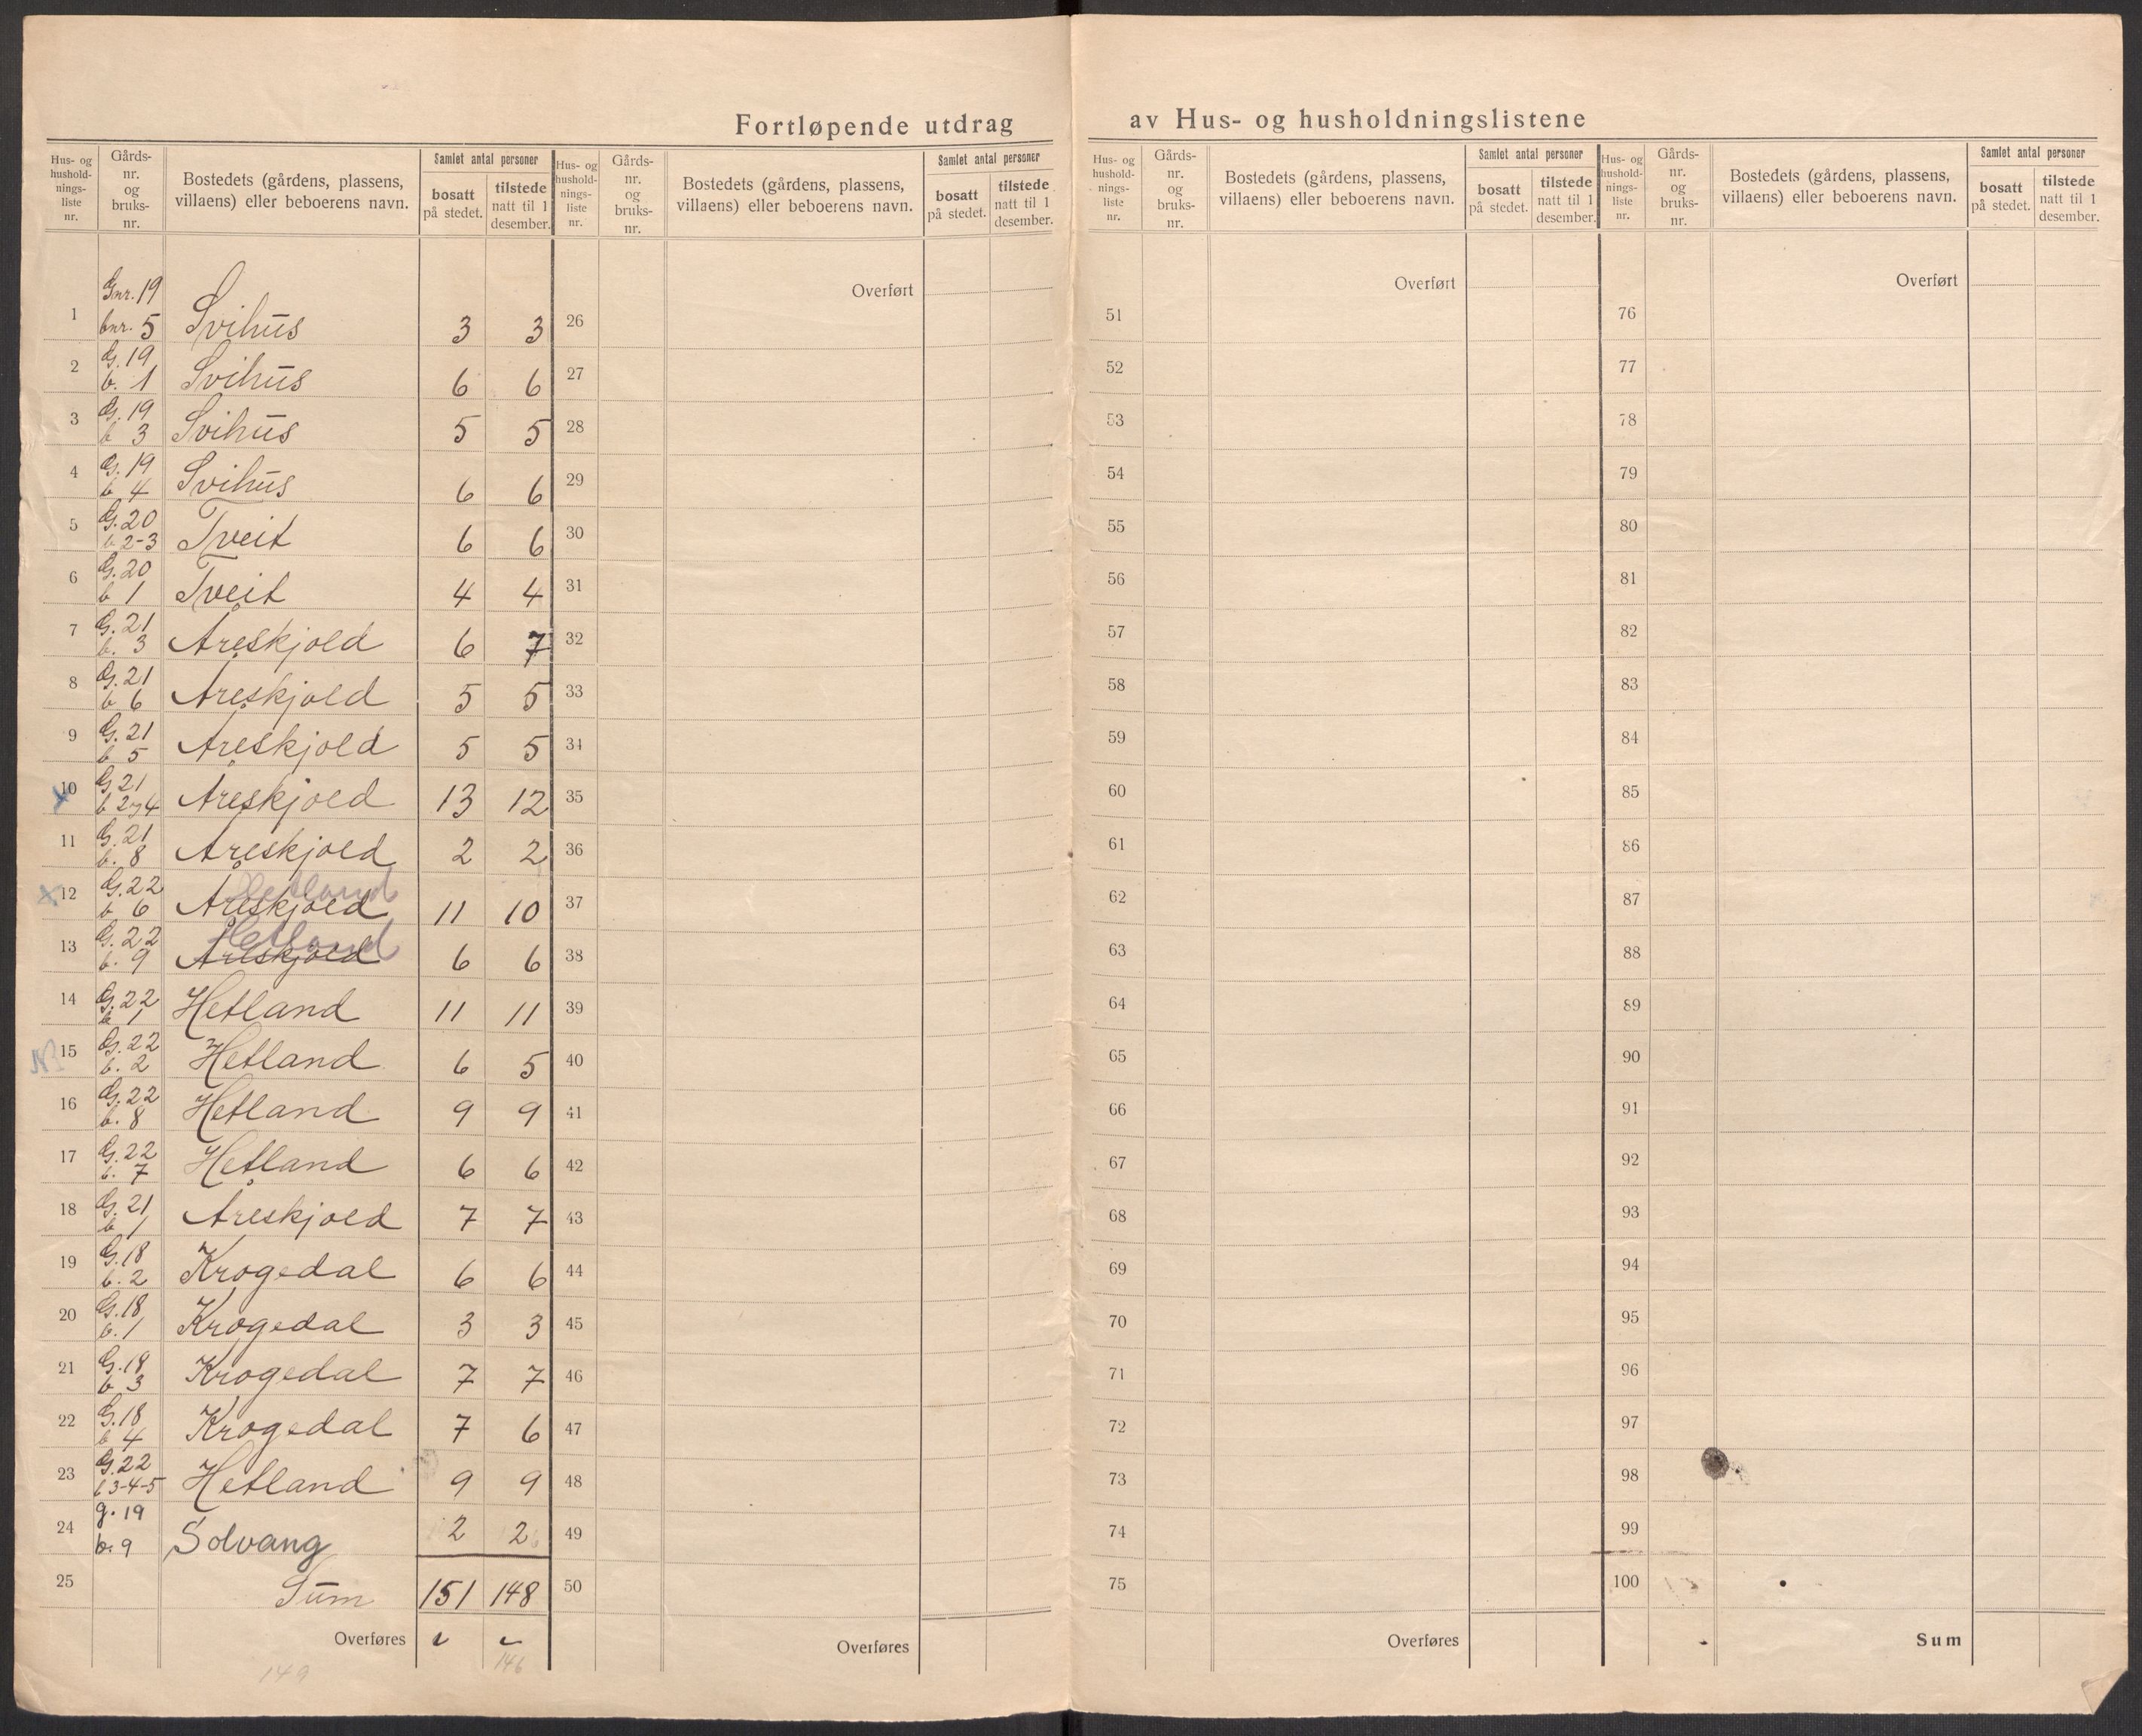 Fortløpende utdrag av Hus- og husholdningslistene
Hus- og hushold-nings-liste nr. | Gårds-nr. og bruks-nr. | Bostedets (gårdens, plassens, villaens) eller beboerens navn. | Samlet antal personer | bosatt på stedet. | tilstede natt til 1 desember.
Hus- og hushold-nings-liste nr. | Gårds-nr. og bruks-nr. | Bostedets (gårdens, plassens, villaens) eller beboerens navn. | Samlet antal personer | bosatt på stedet. | tilstede natt til 1 desember.
Hus- og hushold-nings-liste nr. | Gårds-nr. og bruks-nr. | Bostedets (gårdens, plassens, villaens) eller beboerens navn. | Samlet antal personer | bosatt på stedet. | tilstede natt til 1 desember.
Hus- og hushold-nings-liste nr. | Gårds-nr. og bruks-nr. | Bostedets (gårdens, plassens, villaens) eller beboerens navn. | Samlet antal personer | bosatt på stedet. | tilstede natt til 1 desember.
1 Gnr. 19 bnr. 5 Svihūs 3 3
2 G. 19 b. 1 Svihūs 6 6
3 G. 19 b 3 Svihūs 5 5
4 G. 19 b 4 Svihūs 6 6
5 G. 20 b 2-3 Tveit 6 6
6 G. 20 b 1 Tveit 4 4
7 G. 21 b. 3 Åreskjold 6 7
8 G. 21 b 6 Åreskjold 5 5
9 G. 21 b 5 Åreskjold 5 5
x 10 G 21 b 2 og 4 Åreskjold 13 12
11 G. 21 b. 8 Åreskjold 2 2
x 12 G. 22 b 6 Åreskjold Hetland 11 10
13 G. 22 b. 9 Åreskjold Hetland 6 6
14 G. 22 b 1 Hetland 11 11
15 G. 22 b. 2 Hetland 6 5
16 G. 22 b. 8 Hetland 9 9
17 G. 22 b. 7 Hetland 6 6
18 G. 21 b 1 Åreskjold 7 7
19 G. 18 b. 2 Krogedal 6 6
20 G. 18 b. 1 Krogedal 3 3
21 G. 18 b 3 Krogedal 7 7
22 G. 18 b 4 Krogedal 7 6
23 G. 22 b 3-4-5 Hetland 9 9
24 g. 19 b. 9 Solvang 2 2
25 Sūm 151 148
Overføres
146
149
Overført
26
27
28
29
30
31
32
33
34
35
36
37
38
39
40
41
42
43
44
45
46
47
48
49
50
Overføres
Overført
51
52
53
54
55
56
57
58
59
60
61
62
63
64
65
66
67
68
69
70
71
72
73
74
75
Overføres
Overført
76
77
78
79
80
81
82
83
84
85
86
87
88
89
90
91
92
93
94
95
96
97
98
99
100
Sum